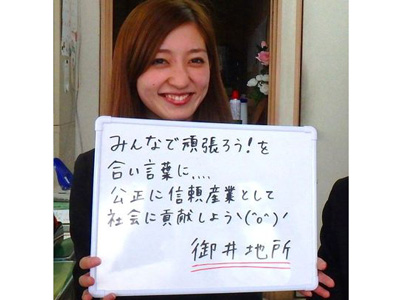 みんなで頑張ろう!を
合い言葉に、、、、
公正に信頼産業として
社会に貢献しようヽ(^o^)ノ
御井地所